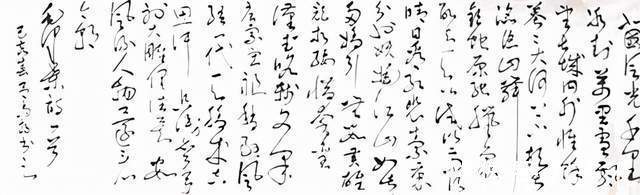 北国风光千里
冰封万里雪飘
望长城内外惟余
莽莽大河上下顿失
滔滔山舞
银蛇原驰蜡象
欲与天公试比高须
晴日看红装素裹
分外妖娆江山如此
多娇引无数英雄
竞折腰惜秦皇
汉武略输文采
唐宗宋祖稍逊风
骚一代天骄成吉
思汗只识弯弓
射大雕俱往矣数
风流人物还看
今朝
毛泽东词一首
己亥春